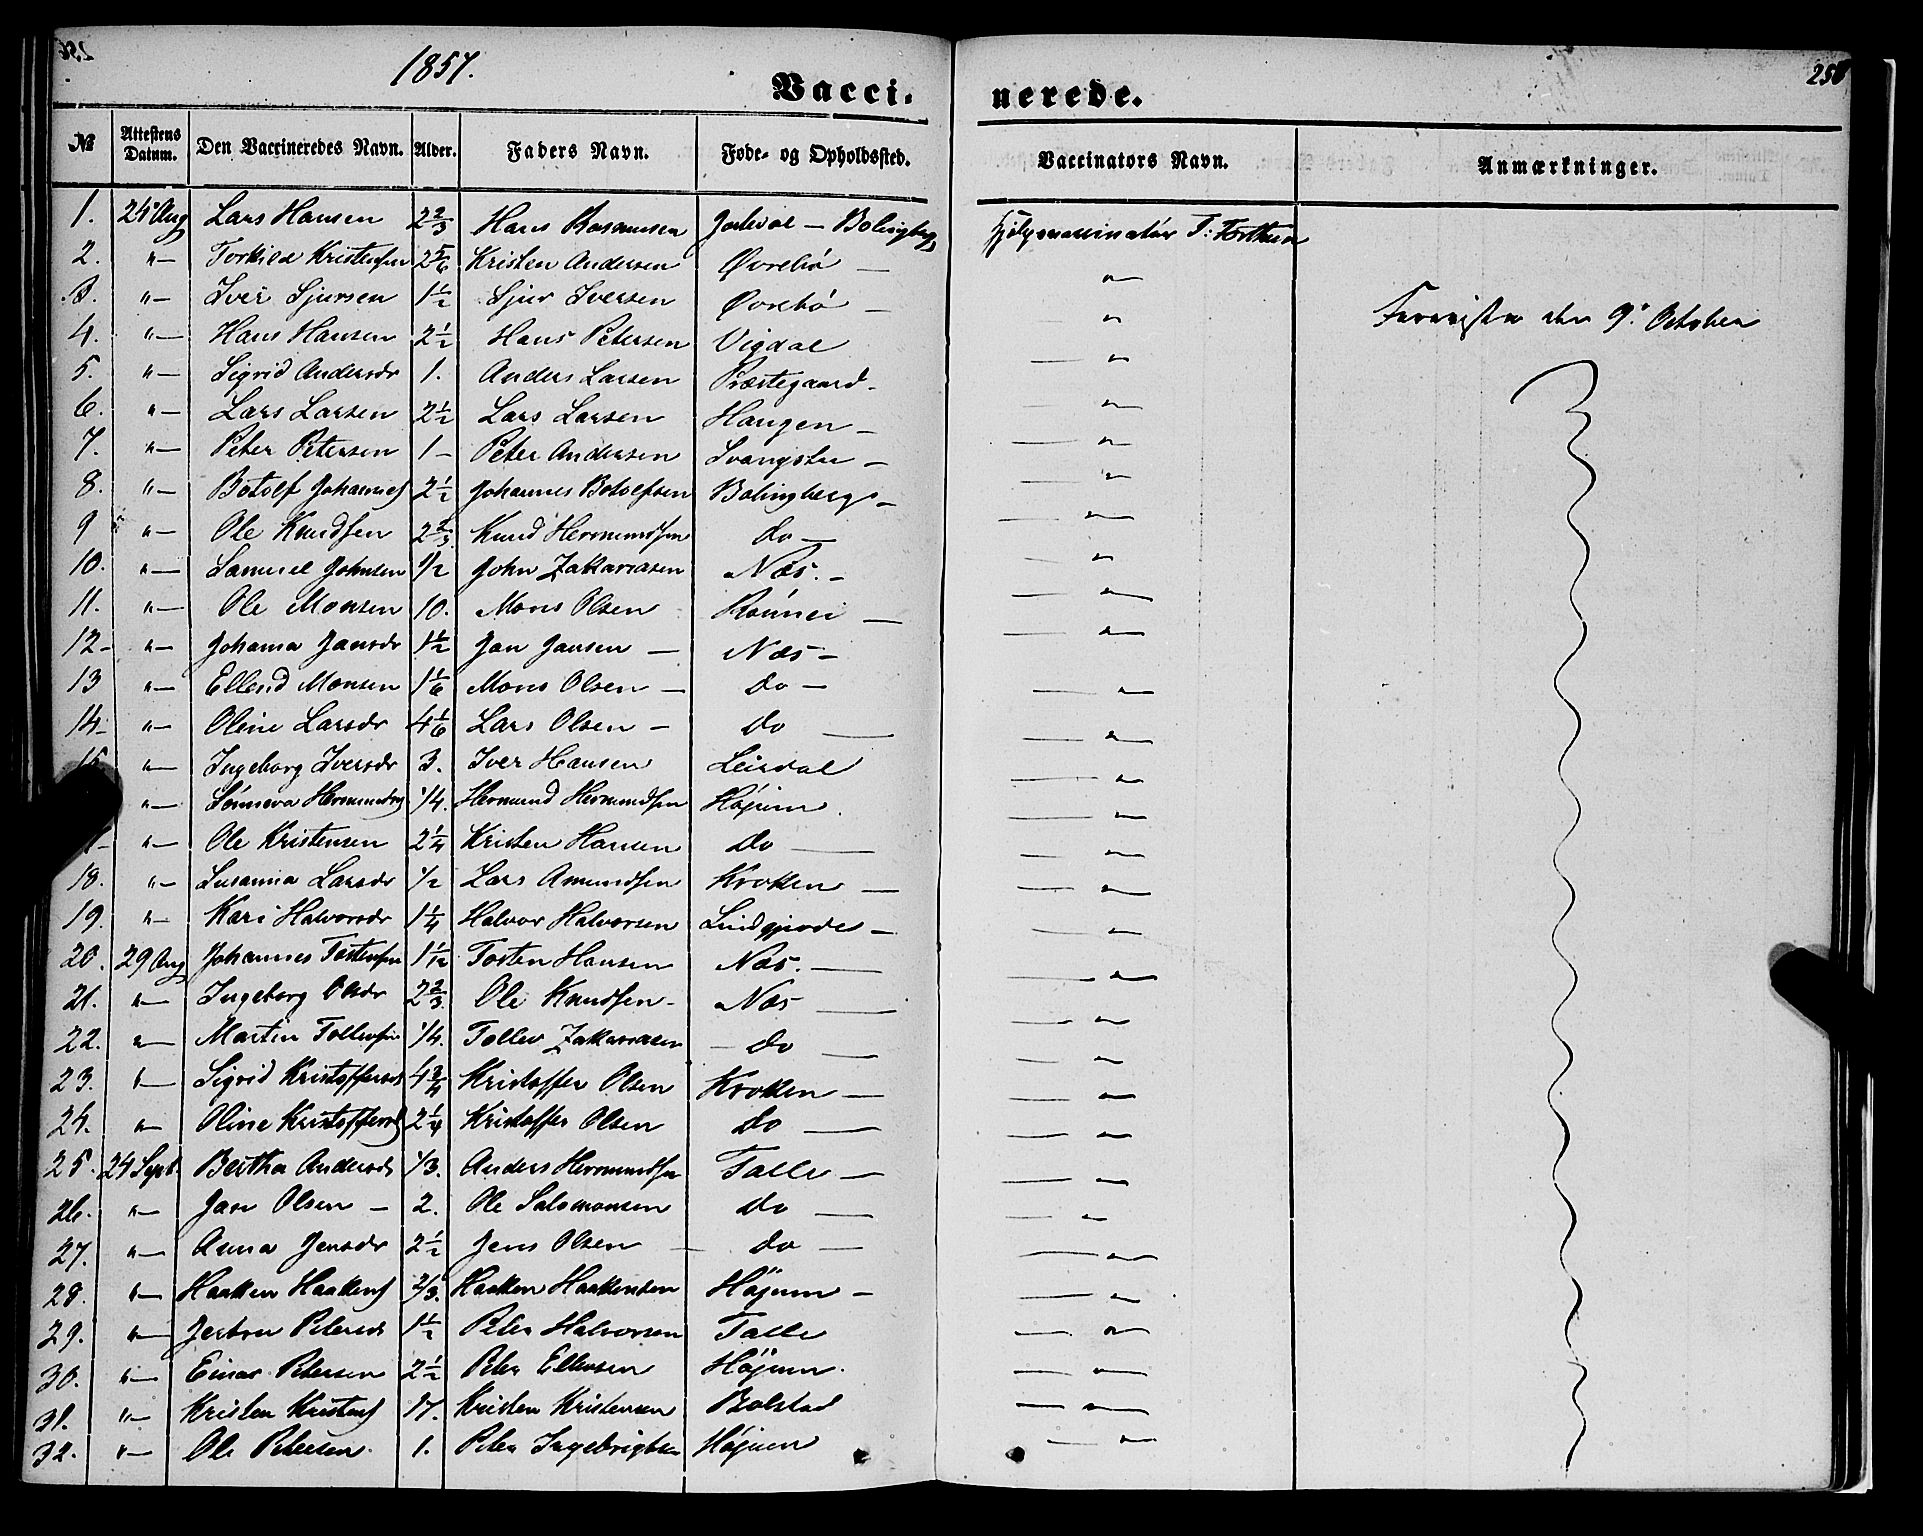 1857.
258
Vacci-
nerede.
№ Attestens Datum. Den Vaccineredes Navn. Alder. Faders Navn. Føde- og Opholdssted. Vaccinators Navn. Anmærkninger.
1. 24 Aug Lars Hansen 2 2/3 Hans Rasmussen — Bolingberg Hjelpevaccinatør T:
2. "— Torkild Kristensen 2 5/6 Kristen Andersen Øvrebø — "
3. "— Iver Sjursen 1 1/2 Sjur Iversen Øvrebø — " den 9. October
4. "— Hans Hansen 2 1/2 Hans Petersen Vigdal — "
5. "— Sigrid Andersdr 1. Anders Larsen Præstegaard — "
6. "— Lars Larsen 2 1/2 Lars Larsen Haugen — "
7. "— Peter Petersen 1 — Peter Andersen — "
8. "— Botolf Johannes 2 1/2 Johannes Botolfsen Bolingberg — "
9 "— Ole Knudsen 2 2/3 Knud Hermundsen do — "
10. "— Samuel Johnsen 1/2 John Zakariasen Næs. — "
11. "— Ole Monsen 10. Mons Olsen Rønnei — "
12 — "— Johanna Jansdr 1 1/2 Jan Jansen — Næs — "
13 "— Ellend Monsen 1 1/6 Mons Olsen — do — "
14 — "— Oline Larsdr 4 1/6 Lars Olsen — do — "
15 "— Ingeborg Iversdr 3. Iver Hansen Leirdal — "
"— Sønneva Hermundsd 1/4. Hermund Hermundsen Højum. — "
"— Ole Kristensen 2 1/4 Kristen Hansen do — "
18. "— Susanna Larsdr 1/2 Lars Amundsen Kroken — "
19. "— Kari Halvorsdr 1 1/4 Halvor Halvorsen — "
20. 29 Aug Johannes Tostensen 1 1/12 Tosten Hansen Næs. — "
21. "— Ingeborg Olsdr 2 2/3. Ole Knudsen — Næs — "
22. "— Martin Tollevsen 1/4. Tollev Zakariasen — do — "
23. "— Sigrid Kristoffersd 4 3/4 Kristoffer Olsen Kroken — "
24. "— Oline Kristoffersd 2 1/4 Kristoffer Olsen do — "
25. 24 Sept. Bertha Andersd 1/3. Anders Hermundsen Talle — "
26. "— Jan Olsen — 2. Ole Salomonsen do — "
27. "— Anna Jensdr 2 1/2 Jens Olsen — do — "
28. "— Haaken Haakens 2/3. Haaken Haakensen Højum — "
29. "— Petersd 1 1/2 Peter Halvorsen Talle — "
30. "— Einar Petersen 2 1/2 Peter Ellensen Højum. — "
31. "— Kristen Kristens 17. Kristen Kristensen Bolstad — "
32. "— Ole Petersen. 1. Peter Ingebrigtsen Højum — "